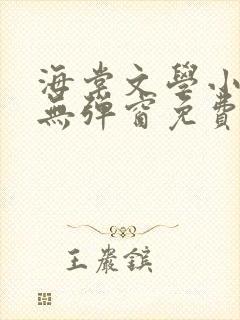 海棠文學小
無彈窗免費
王嚴鑌